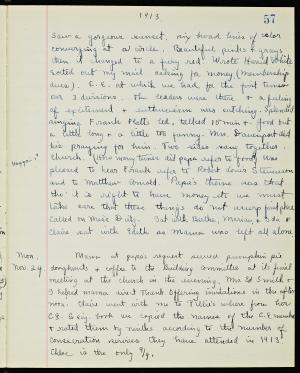 1913
57
Saw a gorgeous sunset, six broad lines of color
converging at a circle. Beautiful pinks & grays,
then it changed to a fiery red. Wrote Hewel White
sorted out my mail asking for money (membership
dues). C.E. at which we had for the first time
our 3 divisions. The leaders were there & a feeling
of excitement & enthusiasm was catching. Splendid
singing. Frank Platts led, talked 15 min & good but
a little long & a little too funny. Mrs. Davenport did
his praying for him. Two sides sang together.
Church. (How many times did papa refer to "food"?) was
pleased to hear Frank refer to Robert Louis Stevenson
and to Matthew Arnold. Papa's theme was that
the it is right to have money etc we must
take care that these things do not usurp first place
Called on Miss Doty. Sat with Bertha, Miriam & Ada &
Claire sat with Edith as Mamma was left all alone.
Mon.
Nov. 24.
Mamma at papa's request served pumpkin pie
doughnuts & coffee to the building committee at its final
meeting at the church in the evening. Mrs Ed Smith &
I helped mamma direct Thank Offering invitations in the after-
noon. Claire went with me to Tillie's where from her
C.E. Secy. book we copied the names of the C.E. members
& rated them by ninths according to the number of
consecration services they have attended in 1913.
Chloe is the only 9/9.